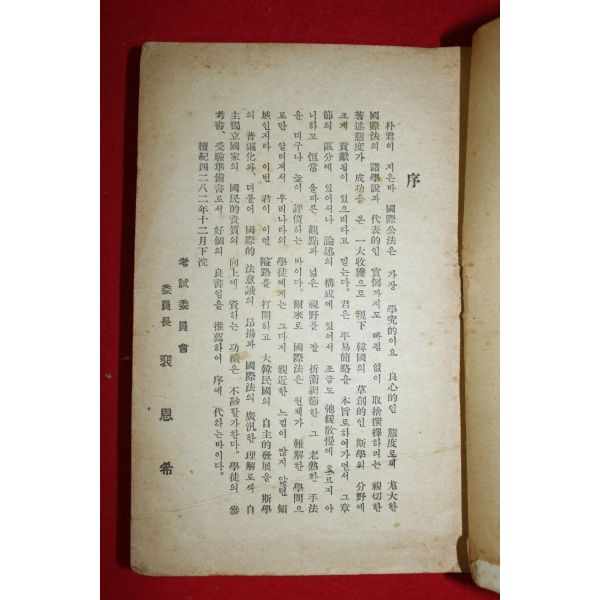 序
朴君이 지은바 國際公法은 가장 學究的이요 良心的인 態度로써 尨大한
國際法의 諸學說과 代表的인 實例까지도 빠짐 없이 取捨撰擇하려는 親切한
著述態度가 成功을 본 一大收獲으로 現下 韓國의 草創的인 斯學의 分野에
크게 貢獻됨이 있으리라고 믿는다. 君은 平易簡略을 本旨로하여가면서 그 章
節의 區分에 있어서나 論述의 構成에 있어서 조금도 弛緩散慢에 흐르지 아
니하고 恒常 올바른 觀點과 넓은 視野를 잘 折衝調節한 그 老熟한 手法
을 더구나 높이 評價하는 바이다. 爾來로 國際法은 원체가 難解한 學問으
로만 알려져서 우리나라의 學徒에게는 그다지 親近한 느낌이 많지 않던 領
域인지라 이번 君이 이런 隘路를 打開하고 大韓民國의 自主的發展을 斯學
의 普遍化와, 더불어 國際的 法意識의 昂揚과 國際法의 廣汎한 理解로써 自
主獨立國家의 國民的資質의 向上에 資하는 功績은 不尠할가한다. 學徒의 參
考書, 受驗準備書로서 好個의 良書임을 推薦하여 序에 代하는바이다.
檀紀四二八二年十二月下浣
考試委員會
委員長 裵恩希